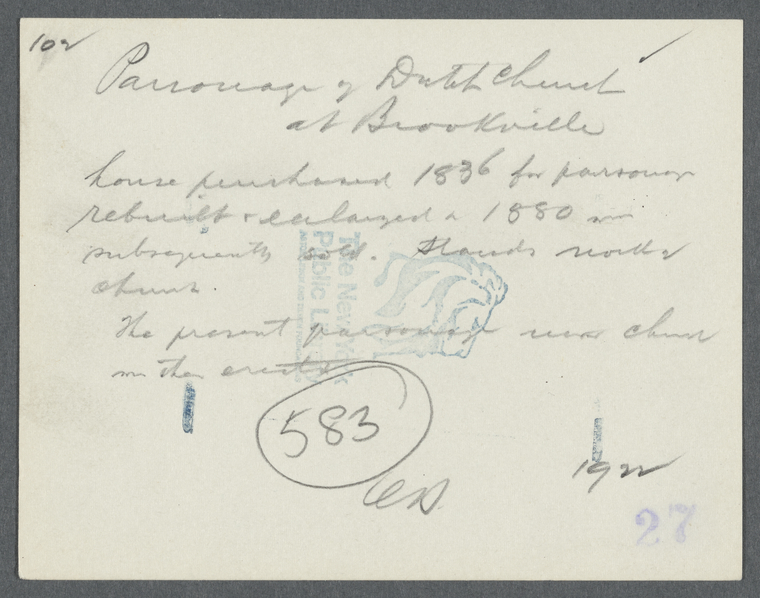 102
Parsonage of Dutch Church
at Brookville
house purchased 1836 for parsonage
rebuilt & enlarged in 1880 was
subsequently sold. Stands north of
church.
The present parsonage near church
was then erected
583
1922
27
The New York
Public Library